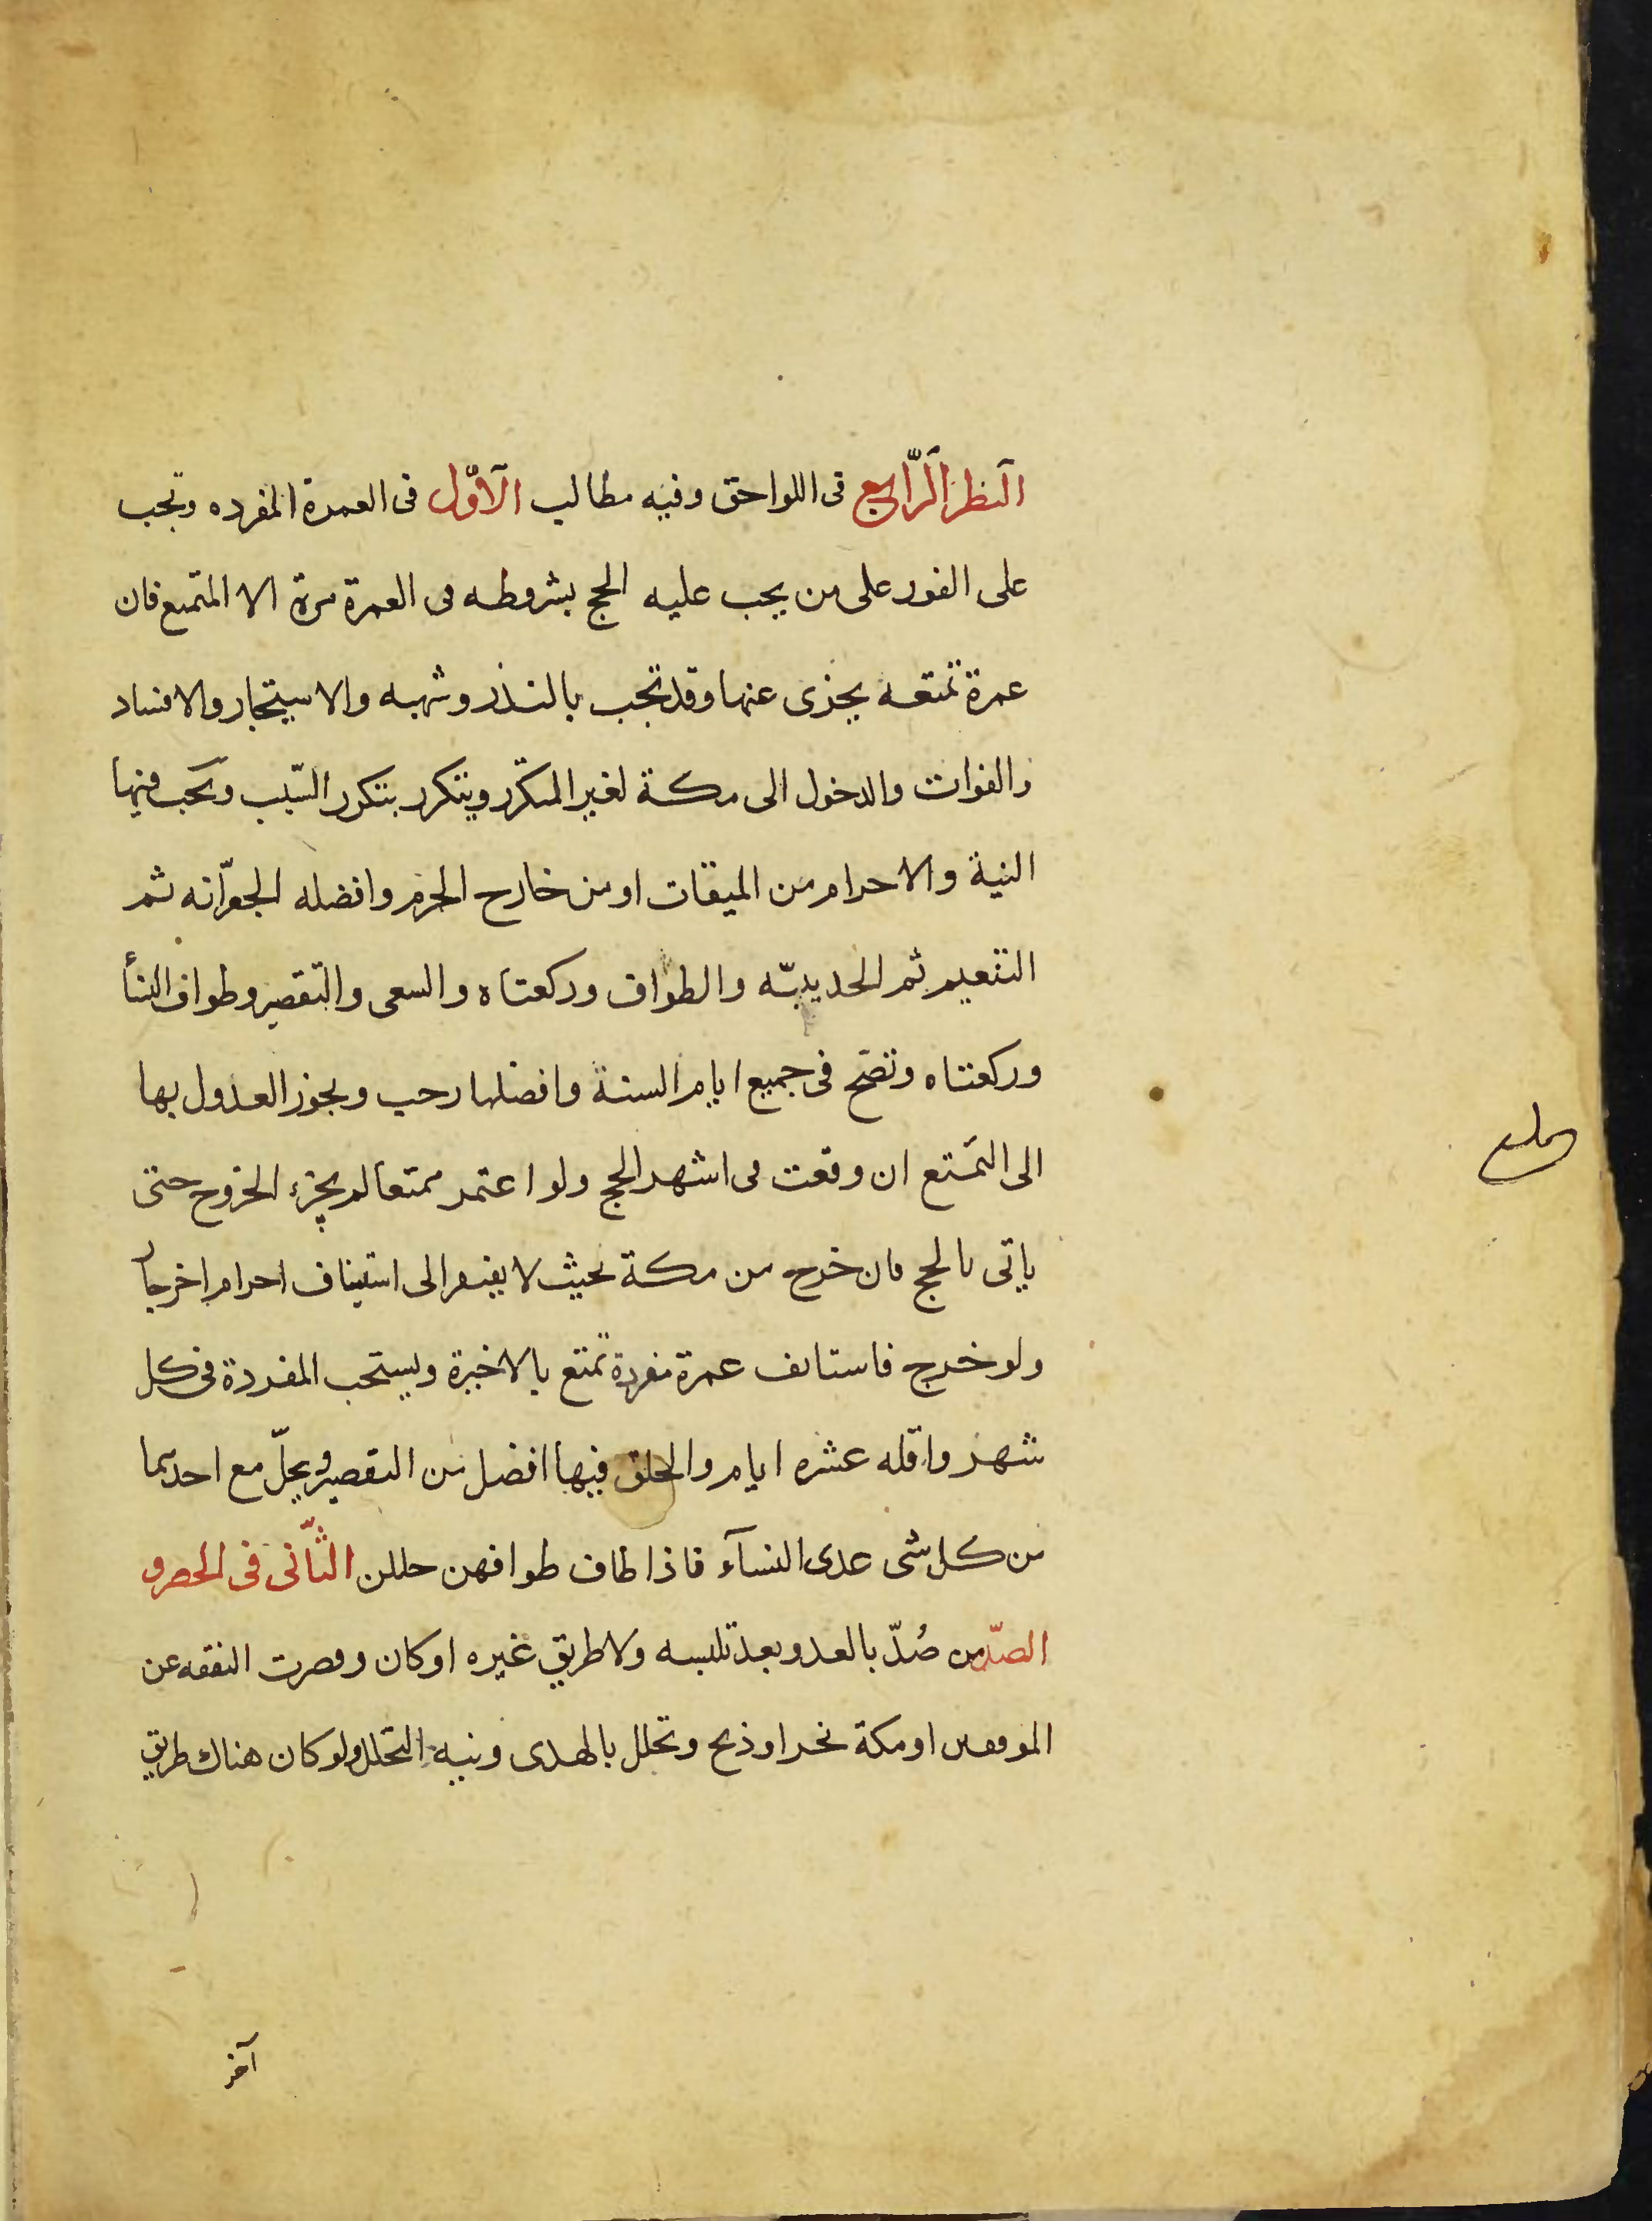 النظر الرّابع فى اللواحق وفيه مطالب الأوّل فى العمرة المفرده وتجب
على الفور على من يجب عليه الحج بشروطه فى العمرة مرة الا المتمتع فان
عمرة تمتعه يجزى عنها وقد تجب بالنذر وشبهه والاستيجار والافساد
والفوات والدخول الى مكة لغير المتكرّر ويتكرر بتكرر السّبب ويجب فيها
النية والاحرام من الميقات او من خارج الحرم وافضله الجعرّانه ثم
التنعيم ثم الحديبيّه والطواف وركعتاه والسعى والتقصير وطواف النسأ
وركعتاه وتصّح فى جميع ايام السنة وافضلها رجب ويجوز العدول بها
الى التمتع ان وقعت فى اشهر الحج ولو اعتمر متمتعا لم يجزء الخروج حتى
ياتى بالحج فان خرج من مكة بحيث لا يفتقر الى استيناف احرام اخر جاز
ولو خرج فاستانف عمرة مفردة تمتع بالاخيرة ويستحب المفردة فى كل
شهر واقله عشره ايام والحلق فيها افضل من التقصير ويحلّ مع احدهما
من كل شى عدى النسآء فاذا طاف طوافهن حللن الثّانى فى الحصر و
الصّد من صُدّ بالعدو بعد تلبسه ولا طريق غيره او كان وقصرت النفقه عن
الموقفين او مكة نحر او ذبح وتحلل بالهدى ونية التحلل ولو كان هناك طريق
آخر